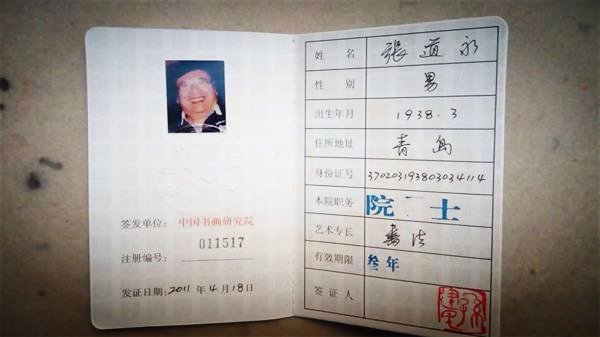 签发单位：中国书画研究院
011517
注册编号：
发证日期：2011年4月18日
姓名 張道永
性别 男
出生年月 1938.3
住所地址 青島
身份证号 370203193803034114
本院职务 院士
艺术专长 書法
有效期限 叁年
签证人